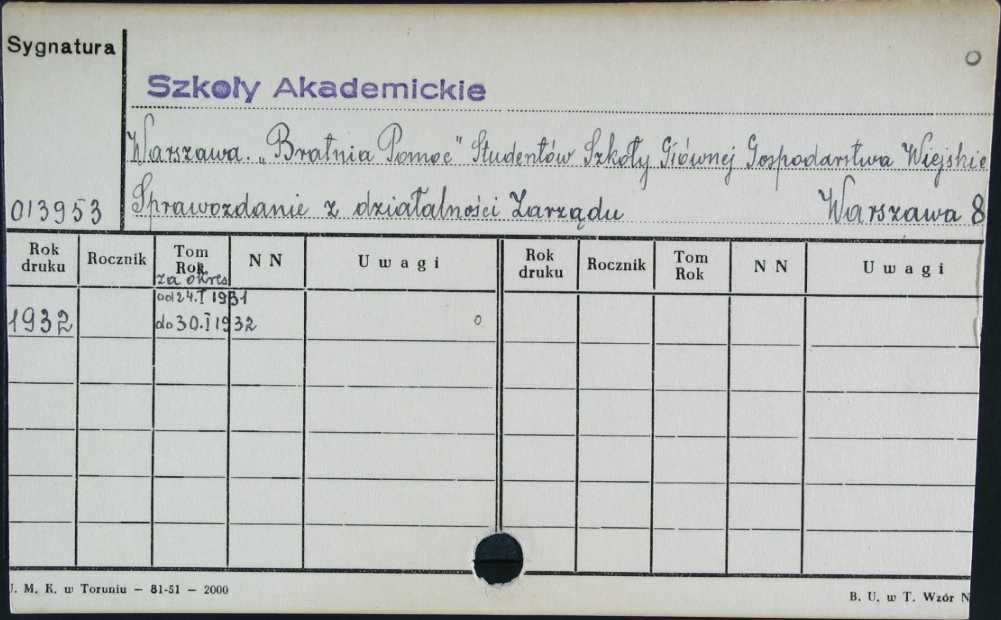 Sygnatura
o
Szkoły Akademickie
Warszawa. „Bratnia Pomoc" Studentów Szkoły Głównej Gospodarstwa Wiejskie
013953 Sprawozdanie z działalności Zarządu Warszawa 8
Rok druku Rocznik Tom Rok N N Uwagi Rok druku Rocznik Tom Rok N N Uwagi
za okres
od 24.I 1931
1932 do 30.I 1932 o
U. M. K. w Toruniu – 81-51 – 2000
B. U. w T. Wzór N